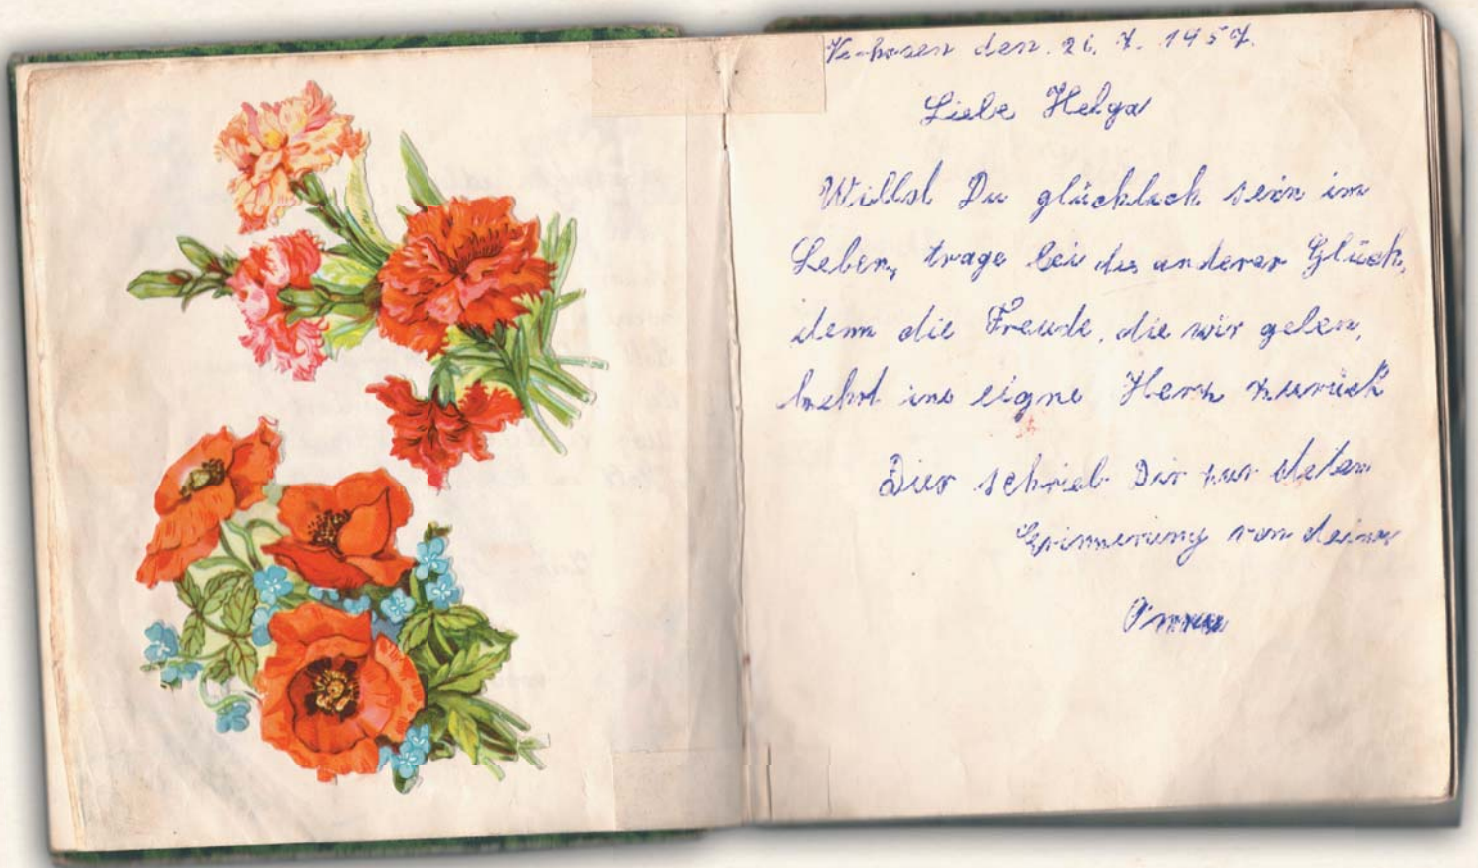 den. 21. 7. 1957.
Liebe Helga
Willst Du glücklich sein im
Leben, trage bei zu anderer Glück,
denn die Freude, die wir geben,
kehrt ins eigne Herz zurück
Dies schrieb Dir zur steten
Erinnerung von deiner